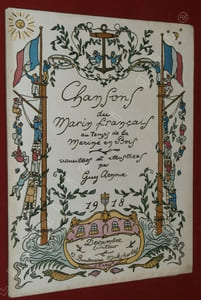 Chansons
du
Marin Français
au Temps de la
Marine en Bois
recueillies et illustrées
par
Guy Arnoux
1918
Devambez
Editeur